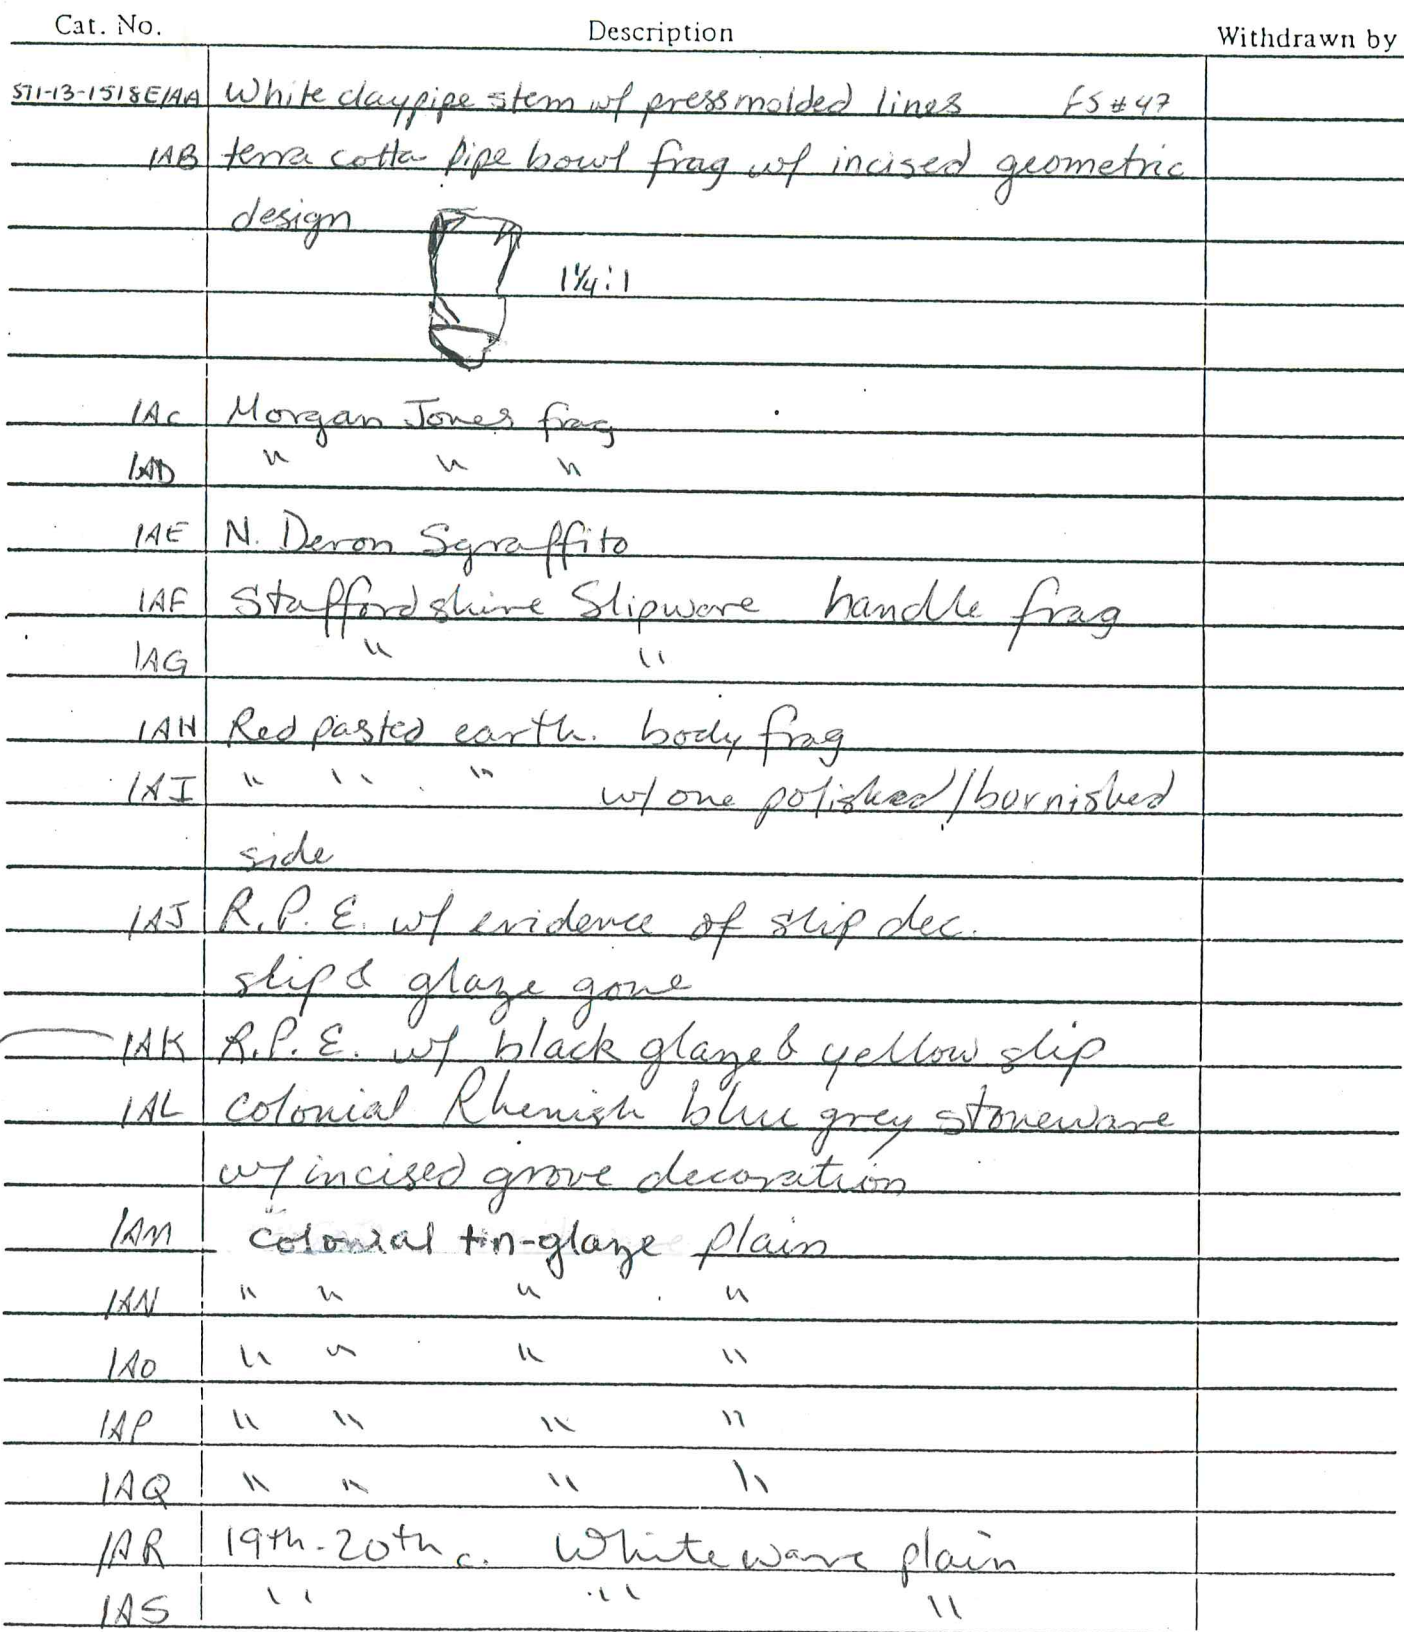 Cat. No. Description Withdrawn by
ST1-13-151 8E/AA White claypipe stem w/ press molded lines FS #47
/AB terra cotta pipe bowl frag w/ incised geometric
design
1¼:1
/AC Morgan Jones frag
/AD " " "
/AE N. Devon Sgraffito
/AF Staffordshire Slipware handle frag
/AG " "
/AH Red pasted earth. body frag
/AI " " " w/ one polished/burnished
side
/AJ R.P.E. w/ evidence of slip dec.
slip & glaze gone
/AK R.P.E. w/ black glaze & yellow slip
/AL colonial Rhenish blue grey stoneware
w/ incised grove decoration
/AM colonial tin-glaze plain
/AN " " " "
/AO " " " "
/AP " " " "
/AQ " " " "
/AR 19th-20th c. Whiteware plain
/AS " " "